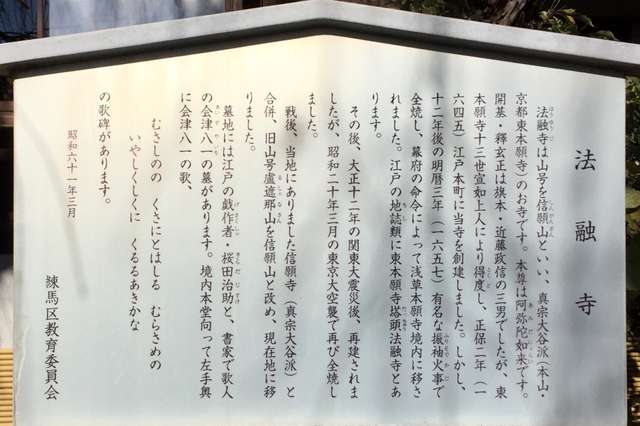 法融寺
法融寺は山号を信願山といい、真宗大谷派（本山・
京都東本願寺）のお寺です。本尊は阿弥陀如来です。
開基・釋玄正は旗本・近藤政信の三男でしたが、東
本願寺十三世宣如上人により得度し、正保二年（一
六四五）江戸本町に当寺を創建しました。しかし、
十二年後の明暦三年（一六五七）有名な振袖火事で
全焼し、幕府の命令によって浅草本願寺境内に移さ
れました。江戸の地誌類に東本願寺塔頭法融寺とあ
ります。
その後、大正十二年の関東大震災後、再建されま
したが、昭和二十年三月の東京大空襲で再び全焼し
ました。
戦後、当地にありました信願寺（真宗大谷派）と
合併、旧山号盧遮那山を信願山と改め、現在地に移
りました。
墓地には江戸の戯作者・桜田治助と、書家で歌人
の会津八一の墓があります。境内本堂向って左手奥
に会津八一の歌、
むさしのの　くさにとはしる　むらさめの
いやしくしくに　くるるあきかな
の歌碑があります。
昭和六十一年三月
練馬区教育委員会